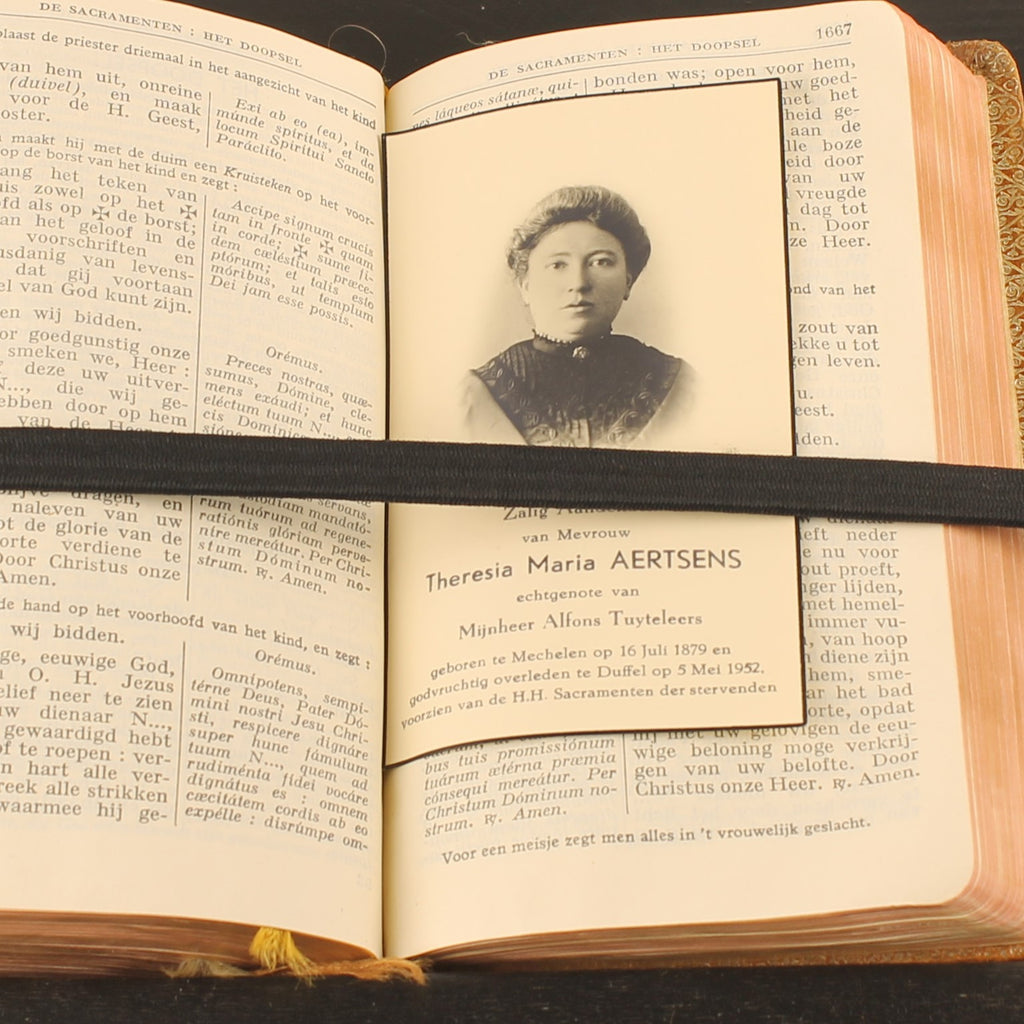 DE SACRAMENTEN : HET DOOPSEL
plaast de priester driemaal in het aangezicht van het kind
van hem uit, onreine
(duivel), en maak
voor de H. Geest,
Exi ab eo (ea), im-
múnde spíritus, et da
locum Spirítui Sancto
Paráclito.
maakt hij met de duim een Kruisteken op het voor-
op de borst van het kind en zegt :
het teken van
zowel op het ✠
als op ✠ de borst;
an het geloof in de
voorschriften en
van levens-
dat gij voortaan
van God kunt zijn.
Accipe signum crucis
tam in fronte ✠ quam
in corde; ✠ sume fi-
dem cæléstium præce-
ptórum; et talis esto
móribus, ut templum
Dei jam esse possis.
en wij bidden.
goedgunstig onze
smeken we, Heer :
deze uw uitver-
N..., die wij ge-
ebben door op hem
van de
Orémus.
Preces nostras, quæ-
sumus, Dómine, cle-
ménter exáudi; et hunc
eléctum tuum N...,
cis Dominicæ
dragen, en
naleven van uw
de glorie van de
verdiene te
Door Christus onze
Amen.
servans,
custodiam mandató-
rum tuórum ad regene-
ratiónis glóriam perve-
níre mereátur. Per Chri-
stum Dóminum no-
strum. ℟. Amen.
de hand op het voorhoofd van het kind, en zegt :
wij bidden.
eeuwige God,
O. H. Jezus
neer te zien
uw dienaar N...,
gewaardigd hebt
te roepen : ver-
hart alle ver-
breek alle strikken
waarmee hij ge-
Orémus.
Omnípotens, sempi-
térne Deus, Pater Dó-
mini nostri Jesu Chri-
sti, respícere dignáre
super hunc fámulum
tuum N..., quem ad
rudiménta fídei vocáre
dignátus es : omnem
cæcitátem cordis ab eo
expélle : disrúmpe om-
DE SACRAMENTEN : HET DOOPSEL 1667
nes láqueos sátanæ, qui-
bonden was; open voor hem,
uw goed-
met het
heid ge-
aan de
alle boze
door
van uw
vreugde
dag tot
Door
Heer.
van het
zout van
u tot
leven.
u.
dden.
Zalig
van Mevrouw
Theresia Maria AERTSENS
echtgenote van
Mijnheer Alfons Tuyteleers
geboren te Mechelen op 16 Juli 1879 en
godvruchtig overleden te Duffel op 5 Mei 1952,
voorzien van de H.H. Sacramenten der stervenden
neder
nu voor
proeft,
lijden,
met hemel-
immer vu-
van hoop
diene zijn
hem, sme-
het bad
opdat
hij met uw gelovigen de eeu-
wige beloning moge verkrij-
gen van uw belofte. Door
Christus onze Heer. ℟. Amen.
bus tuis promissiónum
tuárum ætérna præmia
cónsequi mereátur. Per
Christum Dóminum no-
strum. ℟. Amen.
Voor een meisje zegt men alles in 't vrouwelijk geslacht.